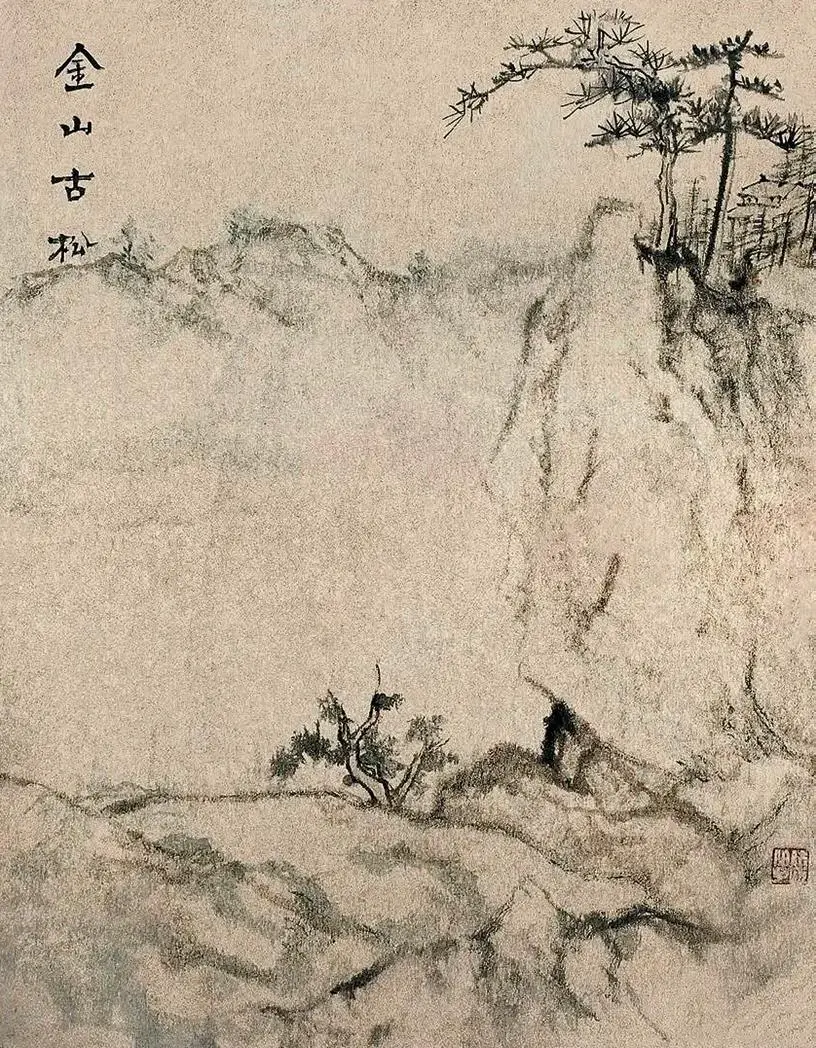 金山古松